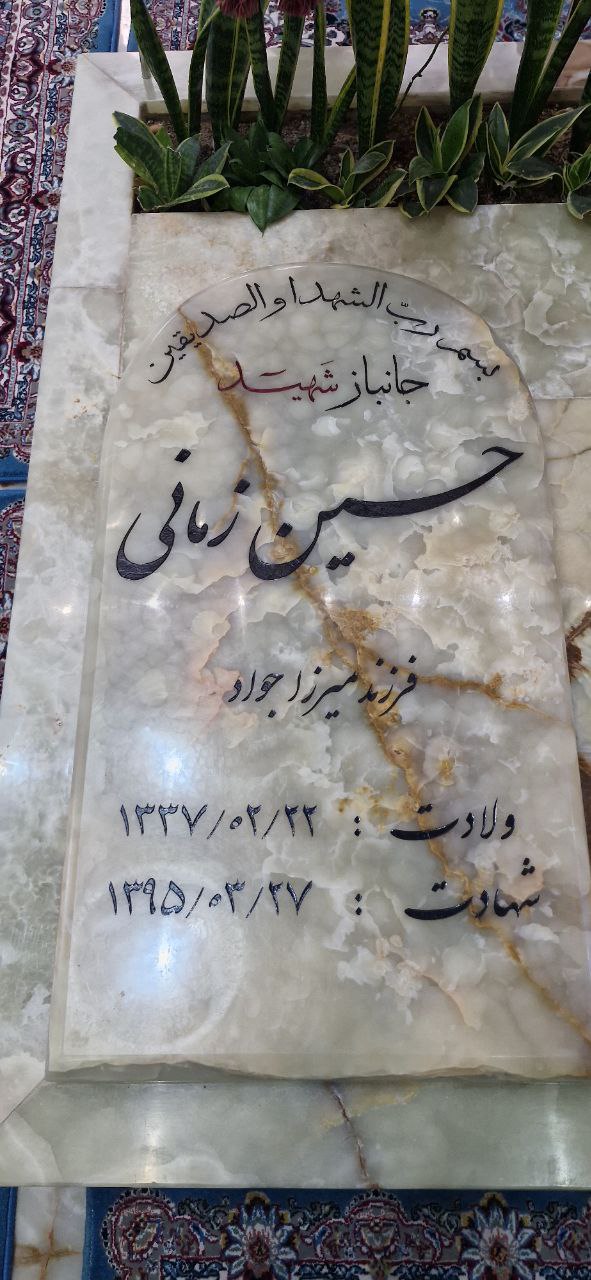 بسم ربّ الشهدا و الصدیقین
جانباز شَهیٓد
حسین زمانی
فرزند میرزا جواد
ولادت : ۱۳۳۷/۰۲/۲۲
شهادت : ۱۳۹۵/۰۳/۲۷